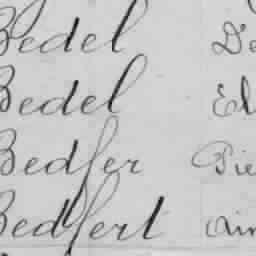 Bedel De
Bedel El
Bedfer Pie
Bedfert Aim